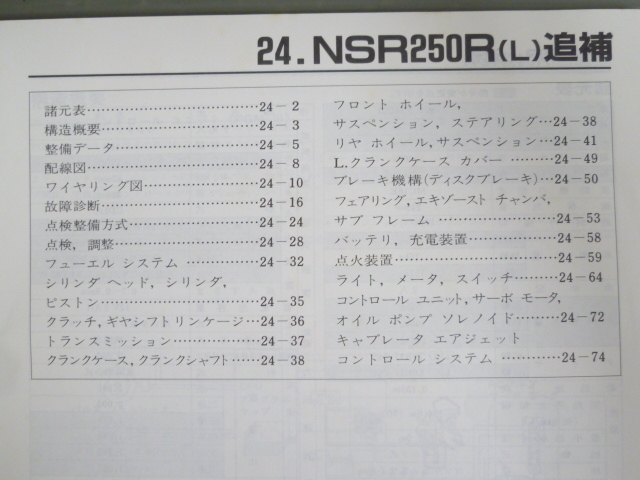 24.NSR250R(L)追補
諸元表……………………………24－2
構造概要…………………………24－3
整備データ………………………24－5
配線図……………………………24－8
ワイヤリング図…………………24－10
故障診断…………………………24－16
点検整備方式……………………24－24
点検, 調整………………………24－28
フューエル システム …………24－32
シリンダ ヘッド, シリンダ,
ピストン…………………………24－35
クラッチ,ギヤシフトリンケージ…24－36
トランスミッション……………24－37
クランクケース,クランクシャフト……24－38
フロント ホイール,
サスペンション, ステアリング…24－38
リヤ ホイール,サスペンション…24－41
L.クランクケース カバー ………24－49
ブレーキ機構(ディスクブレーキ)…24－50
フェアリング,エキゾースト チャンバ,
サブ フレーム …………………24－53
バッテリ, 充電装置……………24－58
点火装置…………………………24－59
ライト, メータ, スイッチ………24－64
コントロール ユニット,サーボ モータ,
オイル ポンプ ソレノイド………24－72
キャブレータ エアジェット
コントロール システム …………24－74